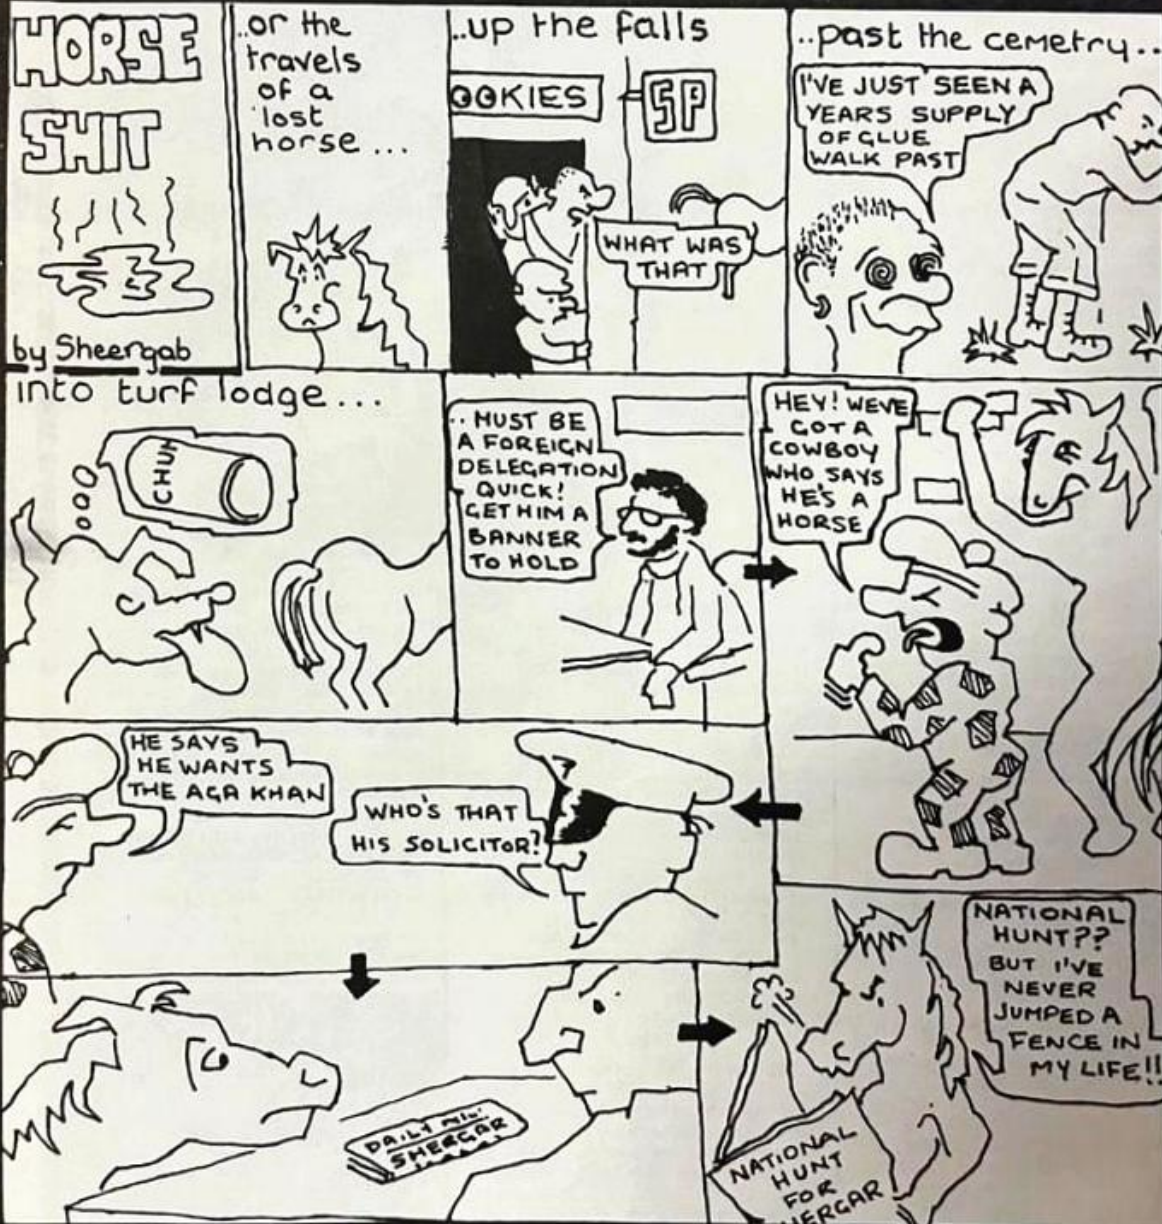 HORSE
SHIT
by Sheergab
..or the
travels
of a
lost
horse ...
..up the falls
OOKIES
SP
WHAT WAS
THAT
..past the cemetry...
I'VE JUST SEEN A
YEARS SUPPLY
OF GLUE
WALK PAST
into turf lodge...
CHUM
.. MUST BE
A FOREIGN
DELEGATION
QUICK!
GET HIM A
BANNER
TO HOLD
HEY! WEVE
GOT A
COWBOY
WHO SAYS
HE'S A
HORSE
HE SAYS
HE WANTS
THE AGA KHAN
WHO'S THAT
HIS SOLICITOR?
DAILY
SHERGAR
NATIONAL
HUNT
FOR
HERGAR
NATIONAL
HUNT??
BUT I'VE
NEVER
JUMPED A
FENCE IN
MY LIFE!!